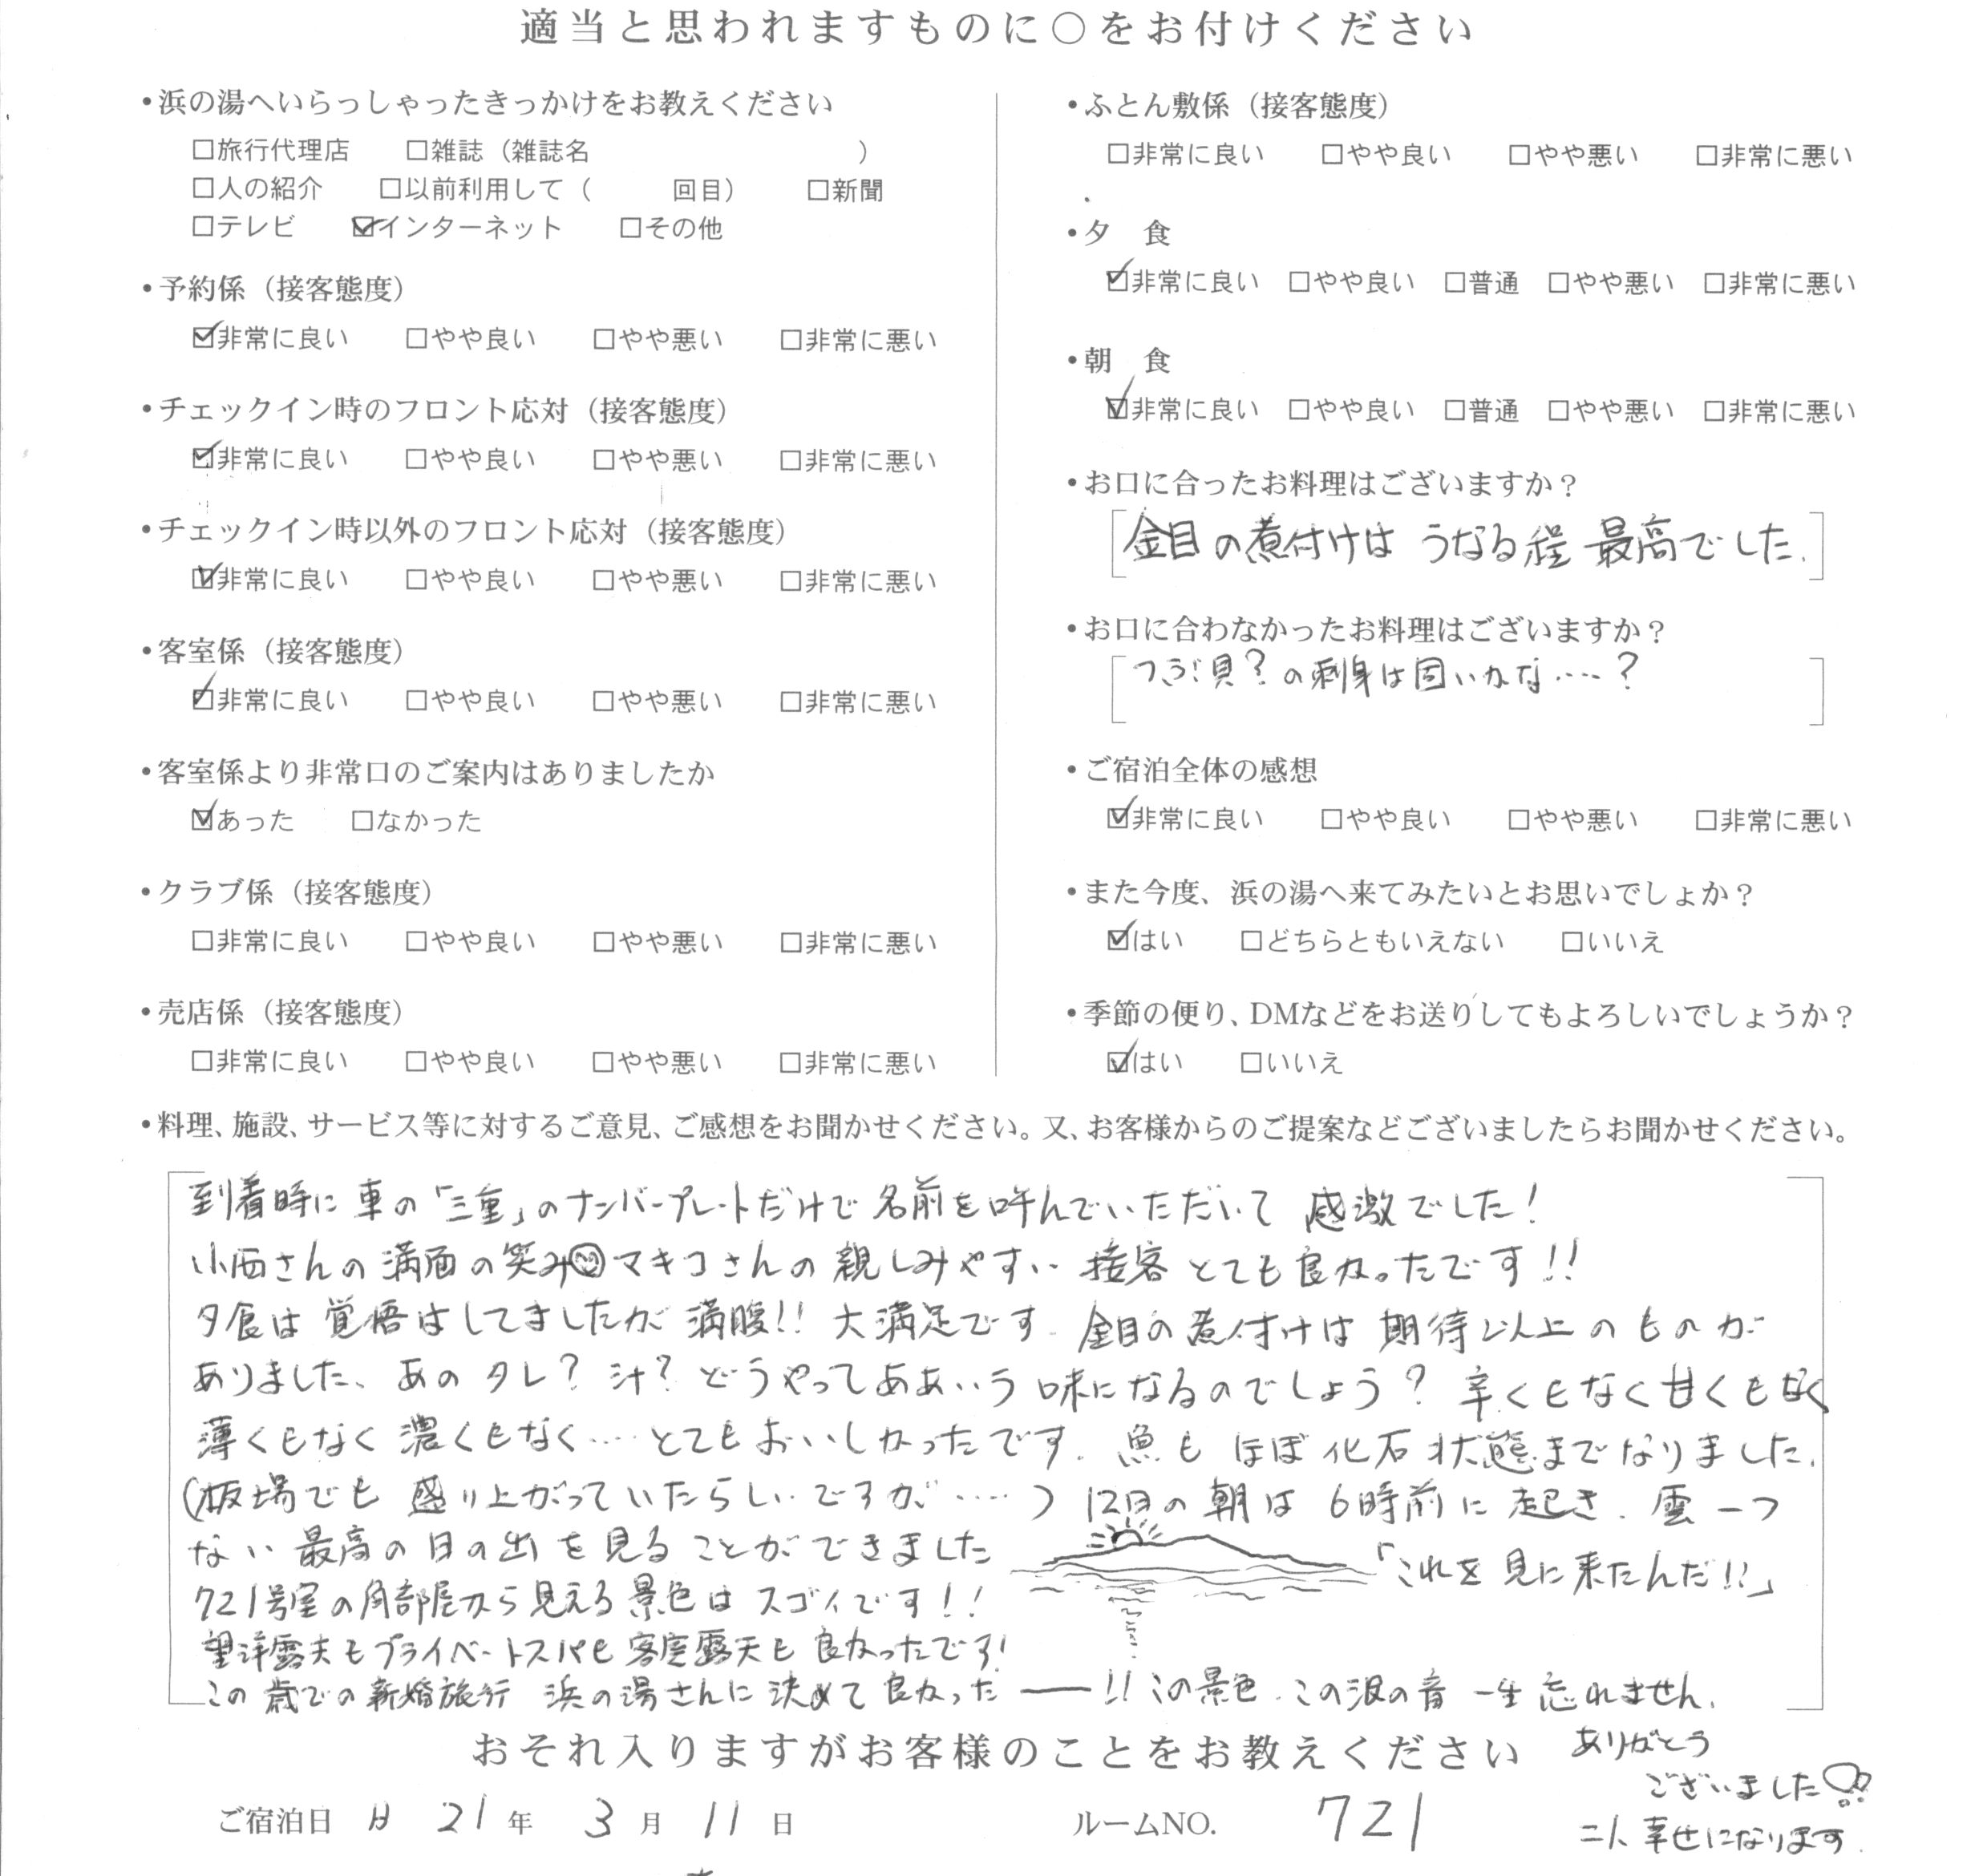 適当と思われますものに○をお付けください
・浜の湯へいらっしゃったきっかけをお教えください
□旅行代理店 □雑誌（雑誌名 ）
□人の紹介 □以前利用して（ 回目） □新聞
□テレビ ☑インターネット □その他
・予約係（接客態度）
☑非常に良い □やや良い □やや悪い □非常に悪い
・チェックイン時のフロント応対（接客態度）
☑非常に良い □やや良い □やや悪い □非常に悪い
・チェックイン時以外のフロント応対（接客態度）
☑非常に良い □やや良い □やや悪い □非常に悪い
・客室係（接客態度）
☑非常に良い □やや良い □やや悪い □非常に悪い
・客室係より非常口のご案内はありましたか
☑あった □なかった
・クラブ係（接客態度）
□非常に良い □やや良い □やや悪い □非常に悪い
・売店係（接客態度）
□非常に良い □やや良い □やや悪い □非常に悪い
・ふとん敷係（接客態度）
□非常に良い □やや良い □やや悪い □非常に悪い
・夕 食
☑非常に良い □やや良い □普通 □やや悪い □非常に悪い
・朝 食
☑非常に良い □やや良い □普通 □やや悪い □非常に悪い
・お口に合ったお料理はございますか？
金目の煮付けは うなる程 最高でした.
・お口に合わなかったお料理はございますか？
つぶ貝？の刺身は固いかな……？
・ご宿泊全体の感想
☑非常に良い □やや良い □やや悪い □非常に悪い
・また今度、浜の湯へ来てみたいとお思いでしょか？
☑はい □どちらともいえない □いいえ
・季節の便り、DMなどをお送りしてもよろしいでしょうか？
☑はい □いいえ
・料理、施設、サービス等に対するご意見、ご感想をお聞かせください。又、お客様からのご提案などございましたらお聞かせください。
到着時に 車の「三重」のナンバープレートだけで 名前を呼んでいただいて 感激でした！
小西さんの 満面の笑み マキコさんの 親しみやすい 接客 とても良かったです!!
夕食は 覚悟はしてましたが 満腹!! 大満足です. 金目の煮付けは 期待以上のものが
ありました、あの タレ？ 汁？ どうやって ああいう 味になるのでしょう？ 辛くもなく甘くもなく
薄くもなく 濃くもなく… とてもおいしかったです. 魚も ほぼ 化石状態までなりました.
（板場でも 盛り上がっていたらしいですが……） 12日の朝は 6時前に 起き. 雲一つ
ない 最高の日の出を見ることができました
「これを 見に来たんだ!!」
721号室の角部屋から見える景色は スゴイです!!
望洋露天もプライベートスパも 客室露天も 良かったです!
この 歳での 新婚旅行 浜の湯さんに 決めて 良かった ――!! この景色. この波の音 一生 忘れません.
ありがとう
ございました!!
二人 幸せになります.
おそれ入りますがお客様のことをお教えください
ご宿泊日 H 21 年 3 月 11 日
ルームNO. 721